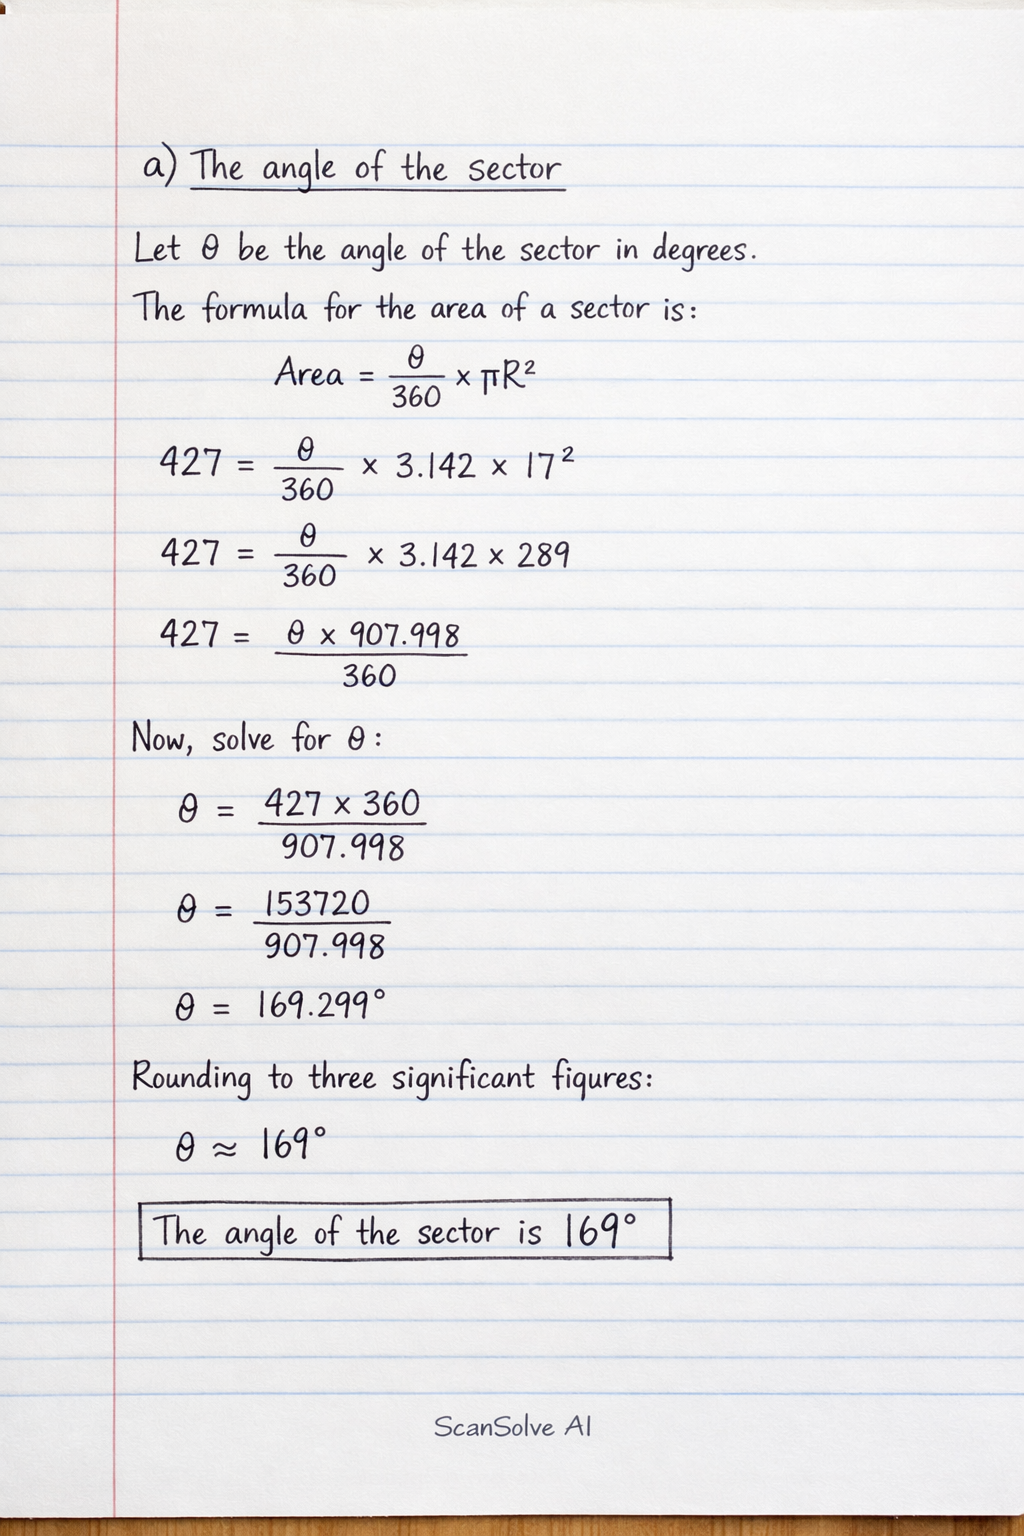 a) The angle of the sector
Let θ be the angle of the sector in degrees.
The formula for the area of a sector is:
Area = θ/360 × πR²
427 = θ/360 × 3.142 × 17²
427 = θ/360 × 3.142 × 289
427 = θ × 907.998/360
Now, solve for θ:
θ = 427 × 360/907.998
θ = 153720/907.998
θ = 169.299°
Rounding to three significant figures:
θ ≈ 169°
The angle of the sector is 169°
ScanSolve AI